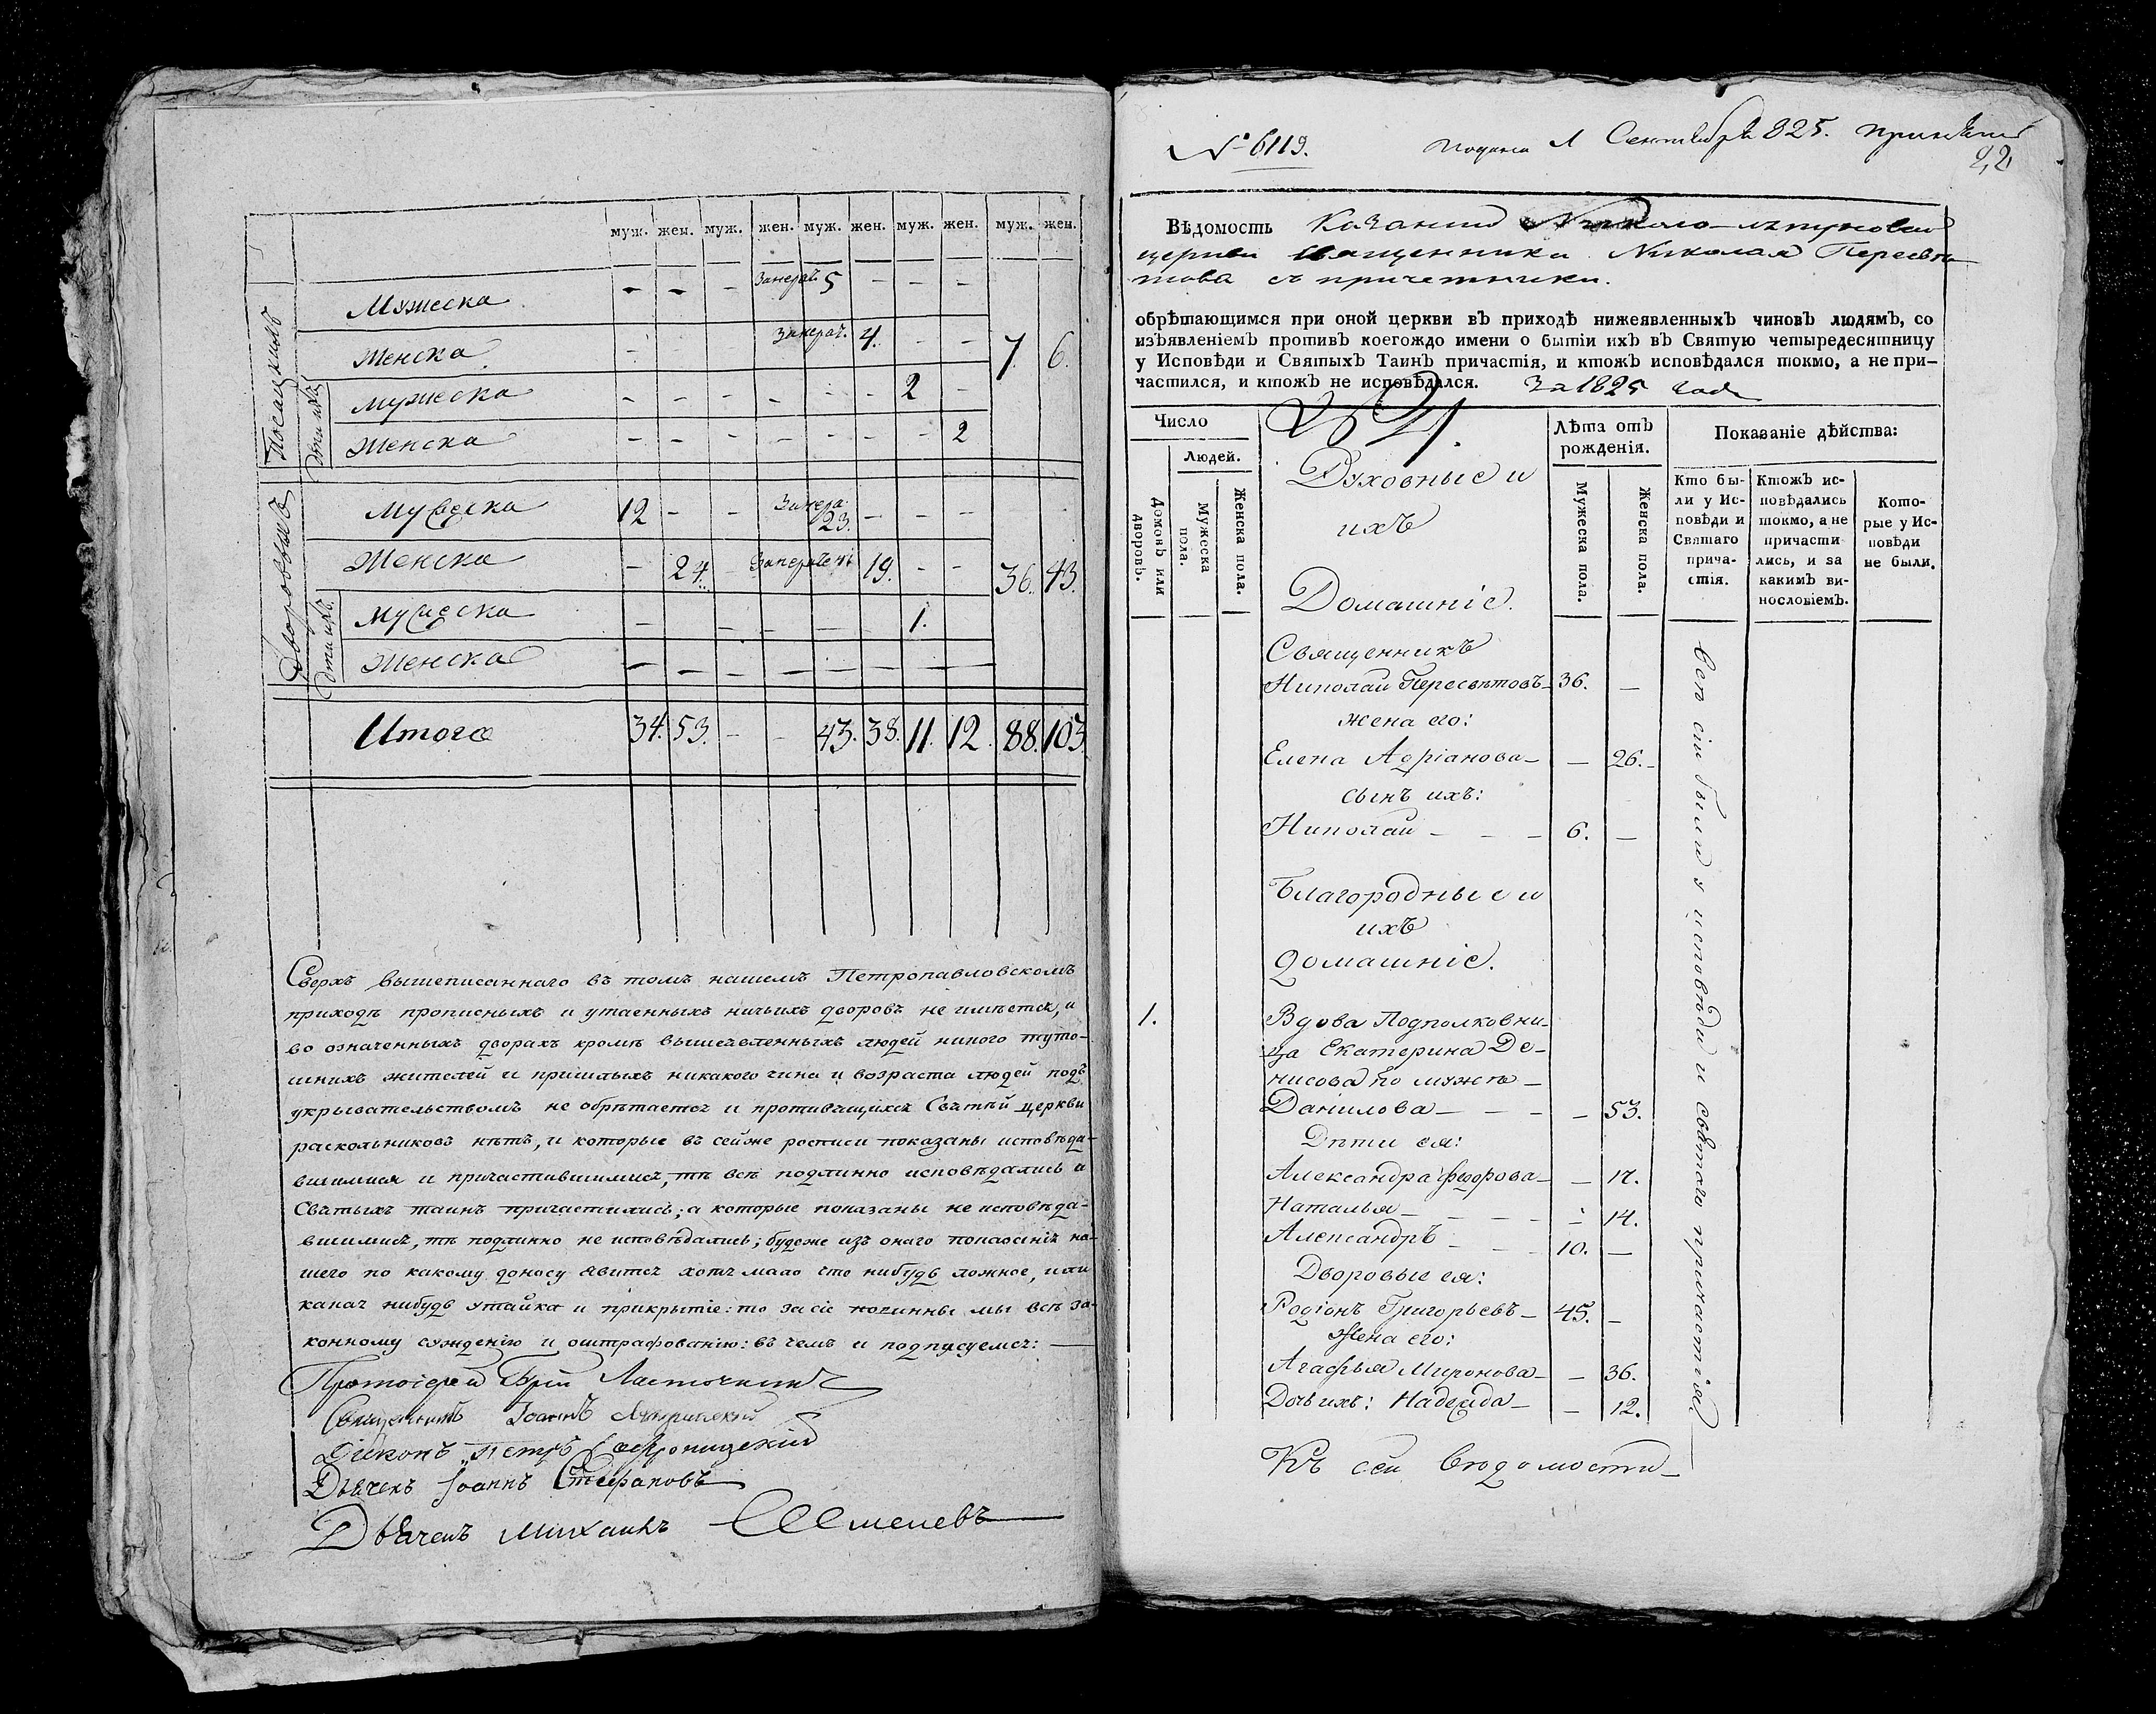 муж. жен. муж. жен. муж. жен. муж. жен. муж. жен.
Посацкихъ
Мужеска - - - Занерач. 5 - - -
Женска - - - Занерач. 4. - - 7. 6.
Дѣти ихъ
Мужеска - - - - - - 2 -
Женска - - - - - - - 2
Дворовыхъ
Мужеска 12 - - Занера. 23. - - -
Женска - 24. - 19. - - 36. 43.
Дѣти ихъ
Мужеска - - - - - - 1.
Женска - - - - - - - -
Итого 34. 53. - - 43. 38. 11. 12. 88. 103.
Сверхъ вышеписаннаго въ томъ нашемъ Петропавловскомъ
приходѣ прописныхъ и утаенныхъ ничьихъ дворовъ не имѣется, и
во означенныхъ дворахъ кромѣ вышеявленныхъ людей никого туто-
шнихъ жителей и пришлыхъ никакого чина и возраста людей подъ
укрывательствомъ не обрѣтается и противящихся Святѣй церкви
раскольниковъ нѣтъ, и которые въ сейже росписи показаны исповѣда-
вшимися и причастившимися, тѣ всѣ подлинно исповѣдались и
Святыхъ таинъ причастились; а которые показаны не исповѣда-
вшимися, тѣ подлинно не исповѣдались; будеже изъ онаго показанія на-
шего по какому доносу явится хотя мало что нибудь ложное, или
какая нибудь утайка и прикрытіе: то за сіе повинны мы всѣ за-
конному сужденію и оштрафованію: въ чемъ и подписуемся:
Протоіерей Ласточкинъ
Священникъ Іоаннъ
Діаконъ Петръ
Дьячекъ Іоаннъ Стефановъ
Дьячекъ Михаилъ
№ 6119. Подана Сентября 825.
22
Вѣдомость Казанской
церкви священника Николая Пересвѣ-
това съ причетники.
обрѣтающимся при оной церкви въ приходѣ нижеявленныхъ чиновъ людямъ, со
изъявленіемъ противъ коегождо имени о бытіи ихъ въ Святую четыредесятницу
у Исповѣди и Святыхъ Таинъ причастія, и ктожъ исповѣдался токмо, а не при-
частился, и ктожъ не исповѣдался. За 1825 годъ
Число
Людей.
Домовъ или дворовъ.
Мужеска пола.
Женска пола.
Духовные и
ихъ
Домашніе.
Лѣта отъ рожденія.
Мужеска пола.
Женска пола.
Показаніе дѣйства:
Кто бы-
ли у Ис-
повѣди и
Святаго
прича-
стія.
Ктожъ ис-
повѣдались
токмо, а не
причасти
лись, и за
какимъ ви-
нословіемъ.
Кото-
рые у Ис-
повѣди
не были.
Священникъ
Николай Пересвѣтовъ 36. -
жена его:
Елена Адріанова - - 26.
сынъ ихъ:
Николай - - - 6. -
Благородные и
ихъ
домашніе.
1. Вдова Подполковни-
ца Екатерина Де-
нисова по мужѣ -
Данилова - - - - 53.
Дѣти ея:
Александра Федорова - - 17.
Наталья - - - - - 14.
Александръ - - - 10. -
Дворовые ея:
Родіонъ Григорьевъ - 45. -
Жена его:
Агафья Миронова - - 36.
Дочь ихъ: Надежда - - 12.
всѣ сіи были у исповѣди и святаго причастія
Къ сей вѣдомости